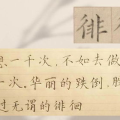 徘
思一千次,不如去做
一次。华丽的跌倒,胜
过无谓的徘徊